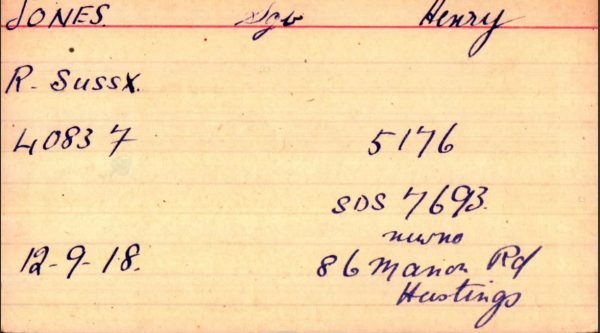 JONES. Henry
R. Sussx.
40837 5176
SDS 7693.
12-9-18. 86 Manor Rd
Hastings